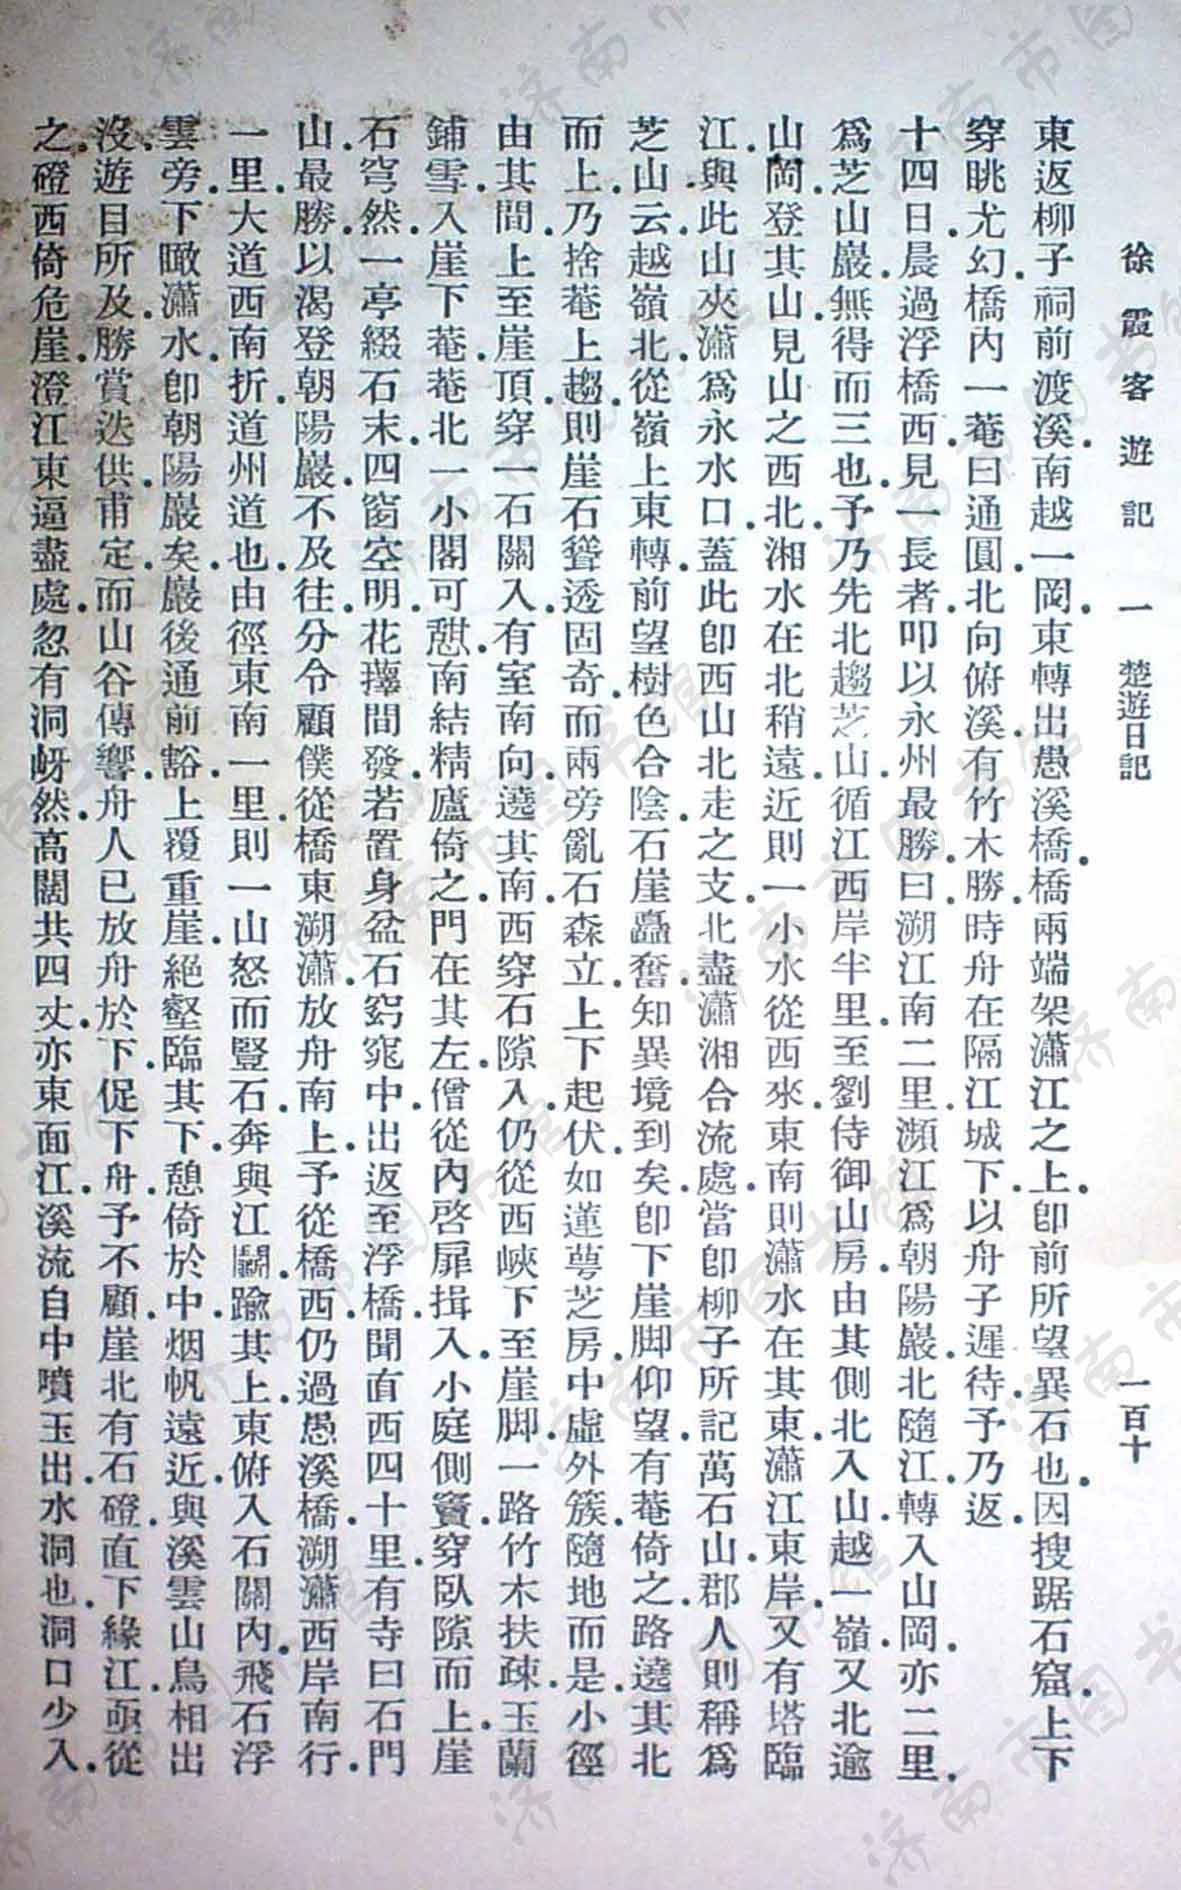 徐霞客遊記 一 楚遊日記 一百十
東返柳子祠前渡溪南越一岡東轉出愚溪橋橋兩端架瀟江之上卽前所望異石也因搜踞石窟上下
穿眺尤幻橋內一菴曰通圓北向俯溪有竹木勝時舟在隔江城下以舟子遲待予乃返
十四日晨過浮橋西見一長者叩以永州最勝曰溯江南二里瀕江爲朝陽巖北隨江轉入山岡亦二里
爲芝山巖無得而三也予乃先北趨芝山循江西岸半里至劉侍御山房由其側北入山越一嶺又北逾
山岡登其山見山之西北湘水在北稍遠近則一小水從西來東南則瀟水在其東瀟江東岸又有塔臨
江與此山夾瀟爲永水口蓋此卽西山北走之支北盡瀟湘合流處當卽柳子所記萬石山郡人則稱爲
芝山云越嶺北從嶺上東轉前望樹色合陰石崖矗奮知異境到矣卽下崖脚仰望有菴倚之路遶其北
而上乃捨菴上趨則崖石聳透固奇而兩旁亂石森立上下起伏如蓮萼芝房中虛外簇隨地而是小徑
由其間上至崖頂穿一石關入有室南向遶其南西穿石隙入仍從西峽下至崖脚一路竹木扶疎玉蘭
鋪雪入崖下菴菴北一小閣可憇南結精廬倚之門在其左僧從內啓扉揖入小庭側竇穿臥隙而上崖
石穹然一亭綴石末四窗空明花蘿間發若置身盆石窈窕中出返至浮橋聞直西四十里有寺曰石門
山最勝以渴登朝陽巖不及往分令顧僕從橋東溯瀟放舟南上予從橋西仍過愚溪橋溯瀟西岸南行
一里大道西南折道州道也由徑東南一里則一山怒而豎石奔與江鬭踰其上東俯入石關內飛石浮
雲旁下瞰瀟水卽朝陽巖矣巖後通前豁上覆重崖絕壑臨其下憩倚於中烟帆遠近與溪雲山鳥相出
沒遊目所及勝賞迭供甫定而山谷傳響舟人已放舟於下促下舟予不顧崖北有石磴直下緣江亟從
之磴西倚危崖澄江東逼盡處忽有洞岈然高闊共四丈亦東面江溪流自中噴玉出水洞也洞口少入
濟南市圖書館